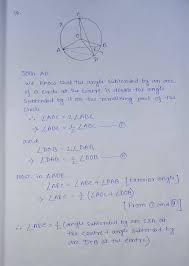 Join AD
We know that the angle subtended by an arc
of a circle at the centre is double the angle
subtended by it on the remaining part of the
circle
∴ ∠AOC = 2∠ADC
⇒ ∠ADC = ½ ∠AOC — ①
and
∠DOB = 2∠DAB
⇒ ∠DAB = ½ ∠DOB — ②
Now in ∆ADE
∠AEC = ∠ADC + ∠DAB [Exterior angle]
⇒ ∠AEC = ½ (∠AOC + ∠DOB)
[From ① and ②]
∴ ∠AEC = ½ (angle subtended by arc CXA at
the centre + angle subtended by
arc DYB at the centre)